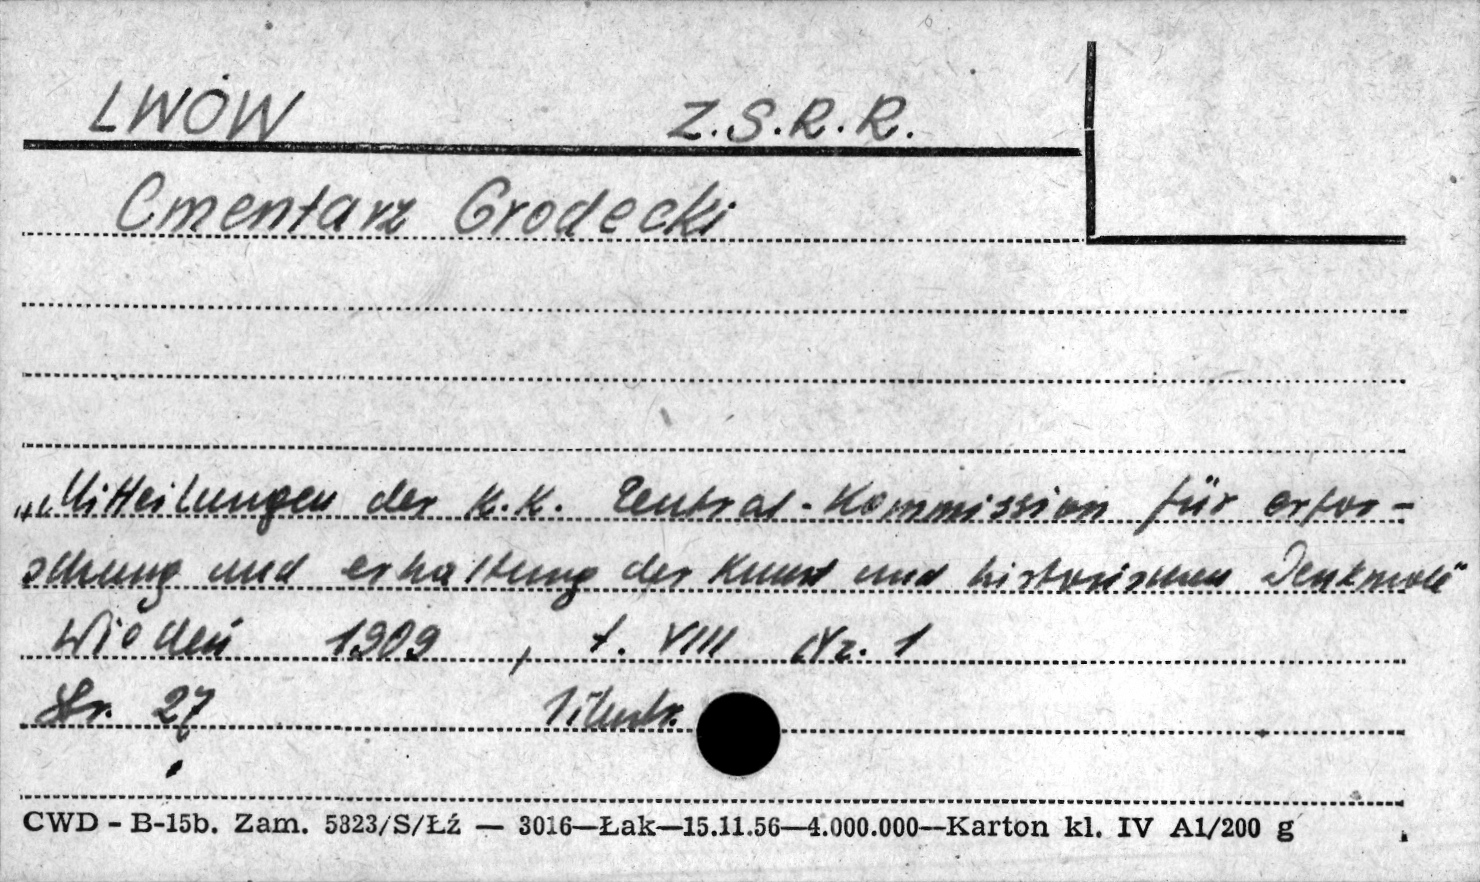 LWÓW Z.S.R.R.
Cmentarz Grodecki
„Mitteilungen der K.K. Zentral-Kommission für erfor-
schung und erhaltung der Kunst und historischen Denkmale"
Wiedeń 1909, t. VIII Nr. 1
Str. 27 1 ilustr.
CWD - B-15b. Zam. 5823/S/Łź — 3016—Łak—15.11.56—4.000.000—Karton kl. IV A1/200 g